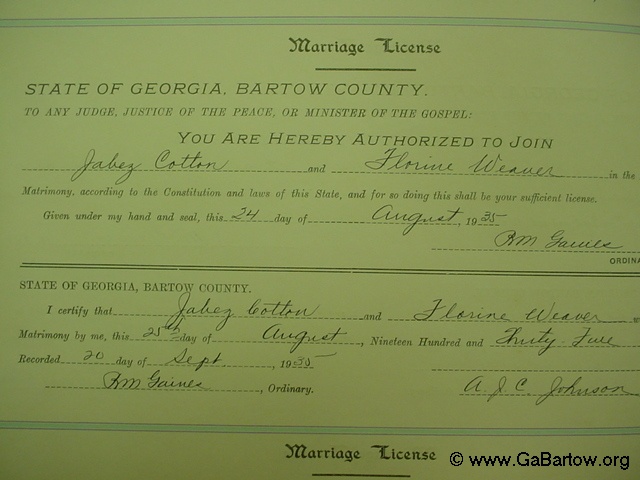 Marriage License
STATE OF GEORGIA, BARTOW COUNTY.
TO ANY JUDGE, JUSTICE OF THE PEACE, OR MINISTER OF THE GOSPEL:
YOU ARE HEREBY AUTHORIZED TO JOIN
Jabez Cotton and Florine Weaver in the
Matrimony, according to the Constitution and laws of this State, and for so doing this shall be your sufficient license.
Given under my hand and seal, this 24 day of August, 1935
RM Gaines
ORDINA
STATE OF GEORGIA, BARTOW COUNTY.
I certify that Jabez Cotton and Florine Weaver w
Matrimony by me, this 25th day of August, Nineteen Hundred and Thirty Five
Recorded 20 day of Sept, 1935
RM Gaines, Ordinary. A. J. C. Johnson
Marriage License
© www.GaBartow.org